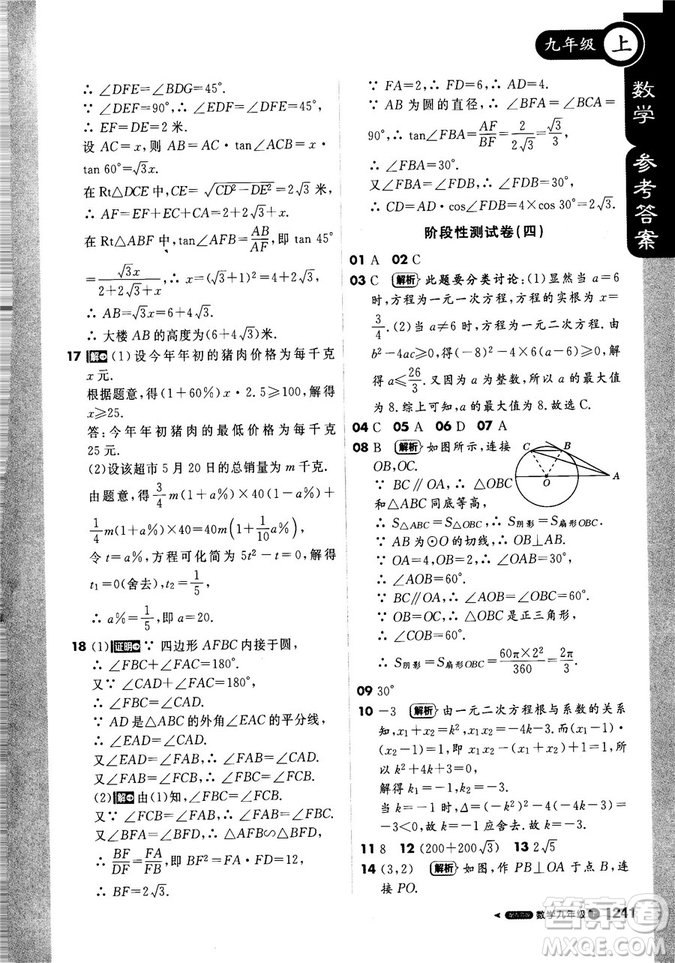 九年级 上
数学 参考答案
∴ ∠DFE=∠BDG=45°.
∵ ∠DEF=90°,∴ ∠EDF=∠DFE=45°.
∴ EF=DE=2 米.
设 AC=x,∴ AB=x·sin 60°·
在 Rt△DCE 中,CE=√(CD²-DE²)=2√3 米,
∴ 在 Rt△ABF 中,tan 45°=AB/AF,即 tan 45°
=√3x/(2+2√3+x).
∴ x=(√3+1)²=4+2√3 米.
∴ AB=√3x=6+4√3.
∴ 大楼 AB 的高度为(6+4√3)米.
17 解 (1)设今年年初的猪肉价格为每千克
x 元.
根据题意,得(1+60%)x·2.5≥100.解得
x≥25.
答:今年年初猪肉的最低价格为每千克
25 元.
(2)设该超市 5 月 20 日的总销量为 m 千克.
由题意,得 3/4 m(1+a%)×40(1-a%)+
1/4 m(1+a%)×40=40m(1+1/10 a%).
令 t=a%,方程可化简为 5t²-t=0.解得
t₁=0(舍去),t₂=1/5,
∴ a%=1/5,即 a=20.
18 (1)证明 ∵ 四边形 AFBC 内接于圆,
∴ ∠FBC+∠FAC=180°.
又∵ ∠CAD+∠FAC=180°,
∴ ∠FBC=∠CAD.
∵ AD 是△ABC 的外角∠EAC 的平分线,
∴ ∠EAD=∠CAD.
又∵ ∠EAD=∠FAB,∴ ∠FAB=∠CAD.
又∵ ∠FAB=∠FCB,∴ ∠FBC=∠FCB.
(2)解 由(1)知,∠FBC=∠FCB.
又∵ ∠FCB=∠FAB,∴ ∠FAB=∠FBC.
∵ ∠BFA=∠BFD,∴ △AFB∽△BFD.
∴ BF/DF=FA/FB,即 BF²=FA·FD=12,
∴ BF=2√3.
∵ FA=2,∴ FD=6,AD=4.
∵ AB 为圆的直径,∴ ∠BFA=∠BCA=
90°,∴ tan∠FBA=AF/BF=2/(2√3)=√3/3.
∴ ∠FBA=30°.
又∵ ∠FDB=∠FBA=30°,
∴ CD=AD·cos∠FDB=4×√3/2=2√3.
阶段性测试卷(四)
01 A 02 C
03 C 解析 此题要分类讨论:(1)显然当 a=6
时,方程为一元一次方程,方程的实根为 x=
3/4.(2)当 a≠6 时,方程为一元二次方程.由
b²-4ac≥0,得(-8)²-4(a-6)×6≥0.解
得 a≤26/3.又因为 a 取整数,所以 a 的最大值
为 8.综上可知,a 的最大值为 8.故选 C.
04 C 05 A 06 D 07 A
08 B 解析 如图所示,连接
OB,OC.
∵ BC∥OA,∴ △OBC
和△ABC 同底等高,
∴ S△ABC=S△OBC.∴ S阴影=S扇形OBC.
∵ AB 为⊙O 的切线,∴ OB⊥AB.
∵ OA=4,OB=2,
∴ ∠AOB=60°.
∵ BC∥OA,∴ ∠OBC=∠AOB=60°.
∵ OB=OC,∴ △OBC 为正三角形.
∴ ∠COB=60°.
∴ S阴影=S扇形OBC=60π×2²/360=2π/3.
09 30°
10 -3 解析 由一元二次方程根与系数的关系
知,x₁+x₂=k²,x₁x₂=k+1.∵ x₁+x₂+
(-x₁x₂)=5,∴ k²-k-1=5.
解得 k₁=-3,k₂=2.
C B O A
11 8 12 (200+200√3) 13 2√5
14 (3,2) 解析 如图,作 PB⊥OA 于点 B,连
接 PO.
数学九年级 上 241
答案圈
MXQE.COM